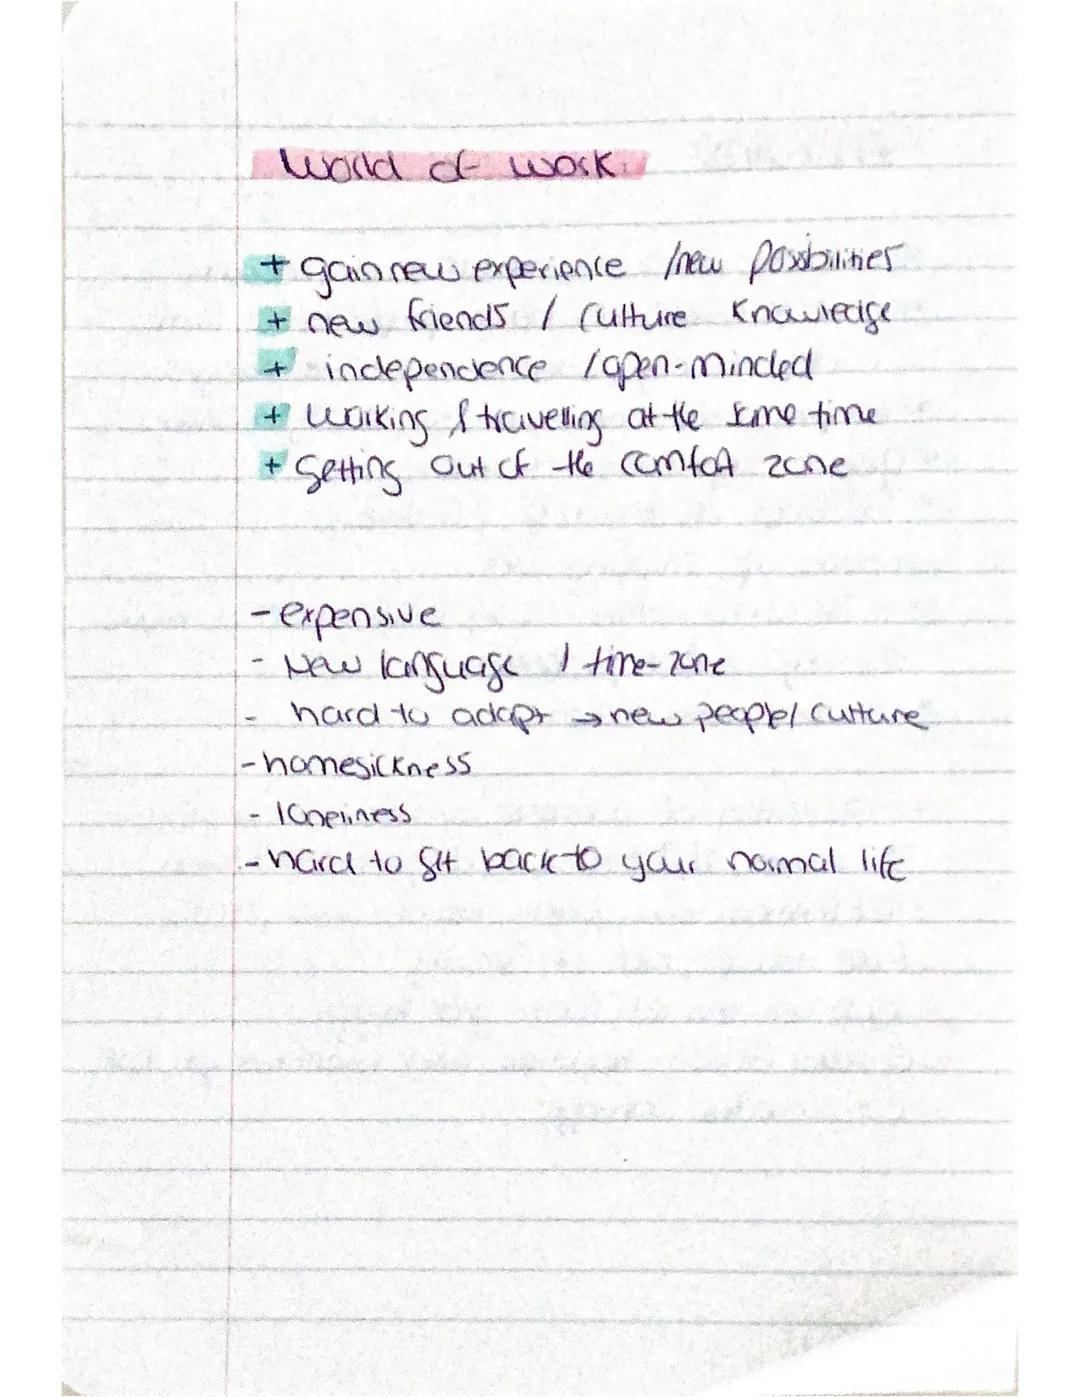 World of work:
+ gain new experience /new possibilities
+ new friends / culture knowledge
+ independence /open-minded
+ working & travelling at the same time
+ getting out of the comfort zone
- expensive
- New language / time-zone
- hard to adapt → new people/ culture
- homesickness
- loneliness
- hard to fit back to your normal life